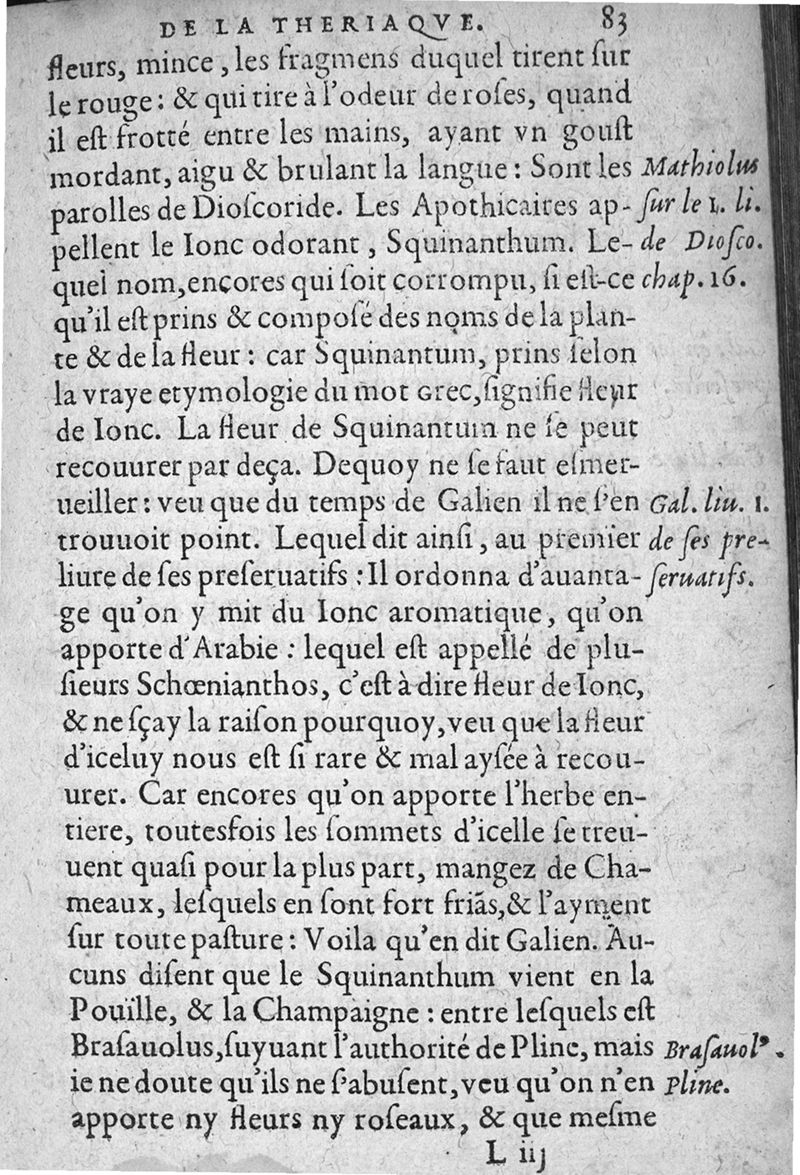 DE LA THERIAQVE. 83
fleurs, mince, les fragmens duquel tirent ſur
le rouge: & qui tire à l'odeur de roſes, quand
il eſt frotté entre les mains, ayant vn gouſt
mordant, aigu & brulant la langue: Sont les
parolles de Dioſcoride. Les Apothicaires ap-
pellent le Ionc odorant, Squinanthum. Le-
quel nom, encores qui ſoit corrompu, ſi eſt-ce
qu'il eſt prins & compoſé des noms de la plan-
te & de la fleur: car Squinantum, prins ſelon
la vraye etymologie du mot Grec, ſignifie fleur
de Ionc. La fleur de Squinantum ne ſe peut
recouurer par deça. Dequoy ne ſe faut eſmer-
ueiller: veu que du temps de Galien il ne ſ'en
trouuoit point. Lequel dit ainſi, au premier
liure de ſes preſeruatifs: Il ordonna d'auanta-
ge qu'on y mit du Ionc aromatique, qu'on
apporte d'Arabie: lequel eſt appellé de plu-
ſieurs Schœnianthos, c'eſt à dire fleur de Ionc,
& ne ſçay la raiſon pourquoy, veu que la fleur
d'iceluy nous eſt ſi rare & mal ayſée à recou-
urer. Car encores qu'on apporte l'herbe en-
tiere, toutesfois les ſommets d'icelle ſe treu-
uent quaſi pour la plus part, mangez de Cha-
meaux, leſquels en ſont fort friãs, & l'ayment
ſur toute paſture: Voila qu'en dit Galien. Au-
cuns diſent que le Squinanthum vient en la
Pouïlle, & la Champaigne: entre leſquels eſt
Braſauolus, ſuyuant l'authorité de Pline, mais
ie ne doute qu'ils ne ſ'abuſent, veu qu'on n'en
apporte ny fleurs ny roſeaux, & que meſme
L iij
Mathiolus
ſur le 1. li.
de Dioſco.
chap. 16.
Gal. liu. 1.
de ſes pre-
ſeruatifs.
Braſauolꝰ.
Pline.